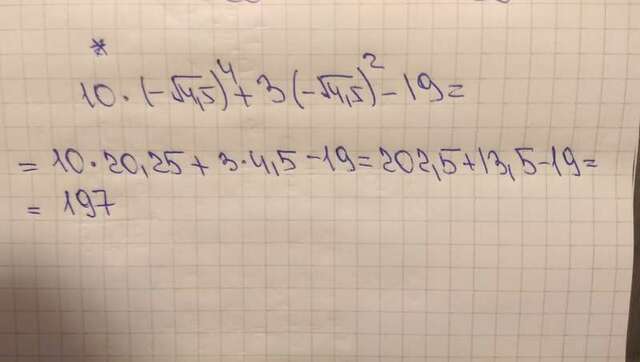 *
10·(-√4,5)⁴+3(-√4,5)²-19=
=10·20,25+3·4,5-19=202,5+13,5-19=
=197